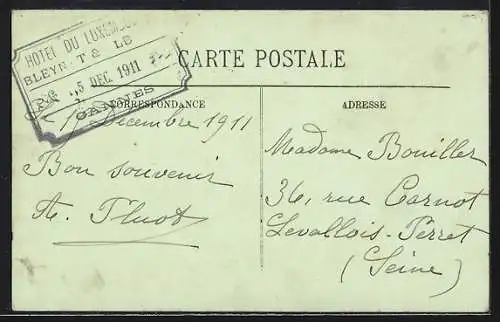 HOTEL DU LUXEMBOU
BLEYN T & LE
5 DEC. 1911
CANNES
CARTE POSTALE
CORRESPONDANCE
ADRESSE
Décembre 1911
Bon souvenir
Madame Bouiller
36, rue Carnot
Levallois-Perret
(Seine)